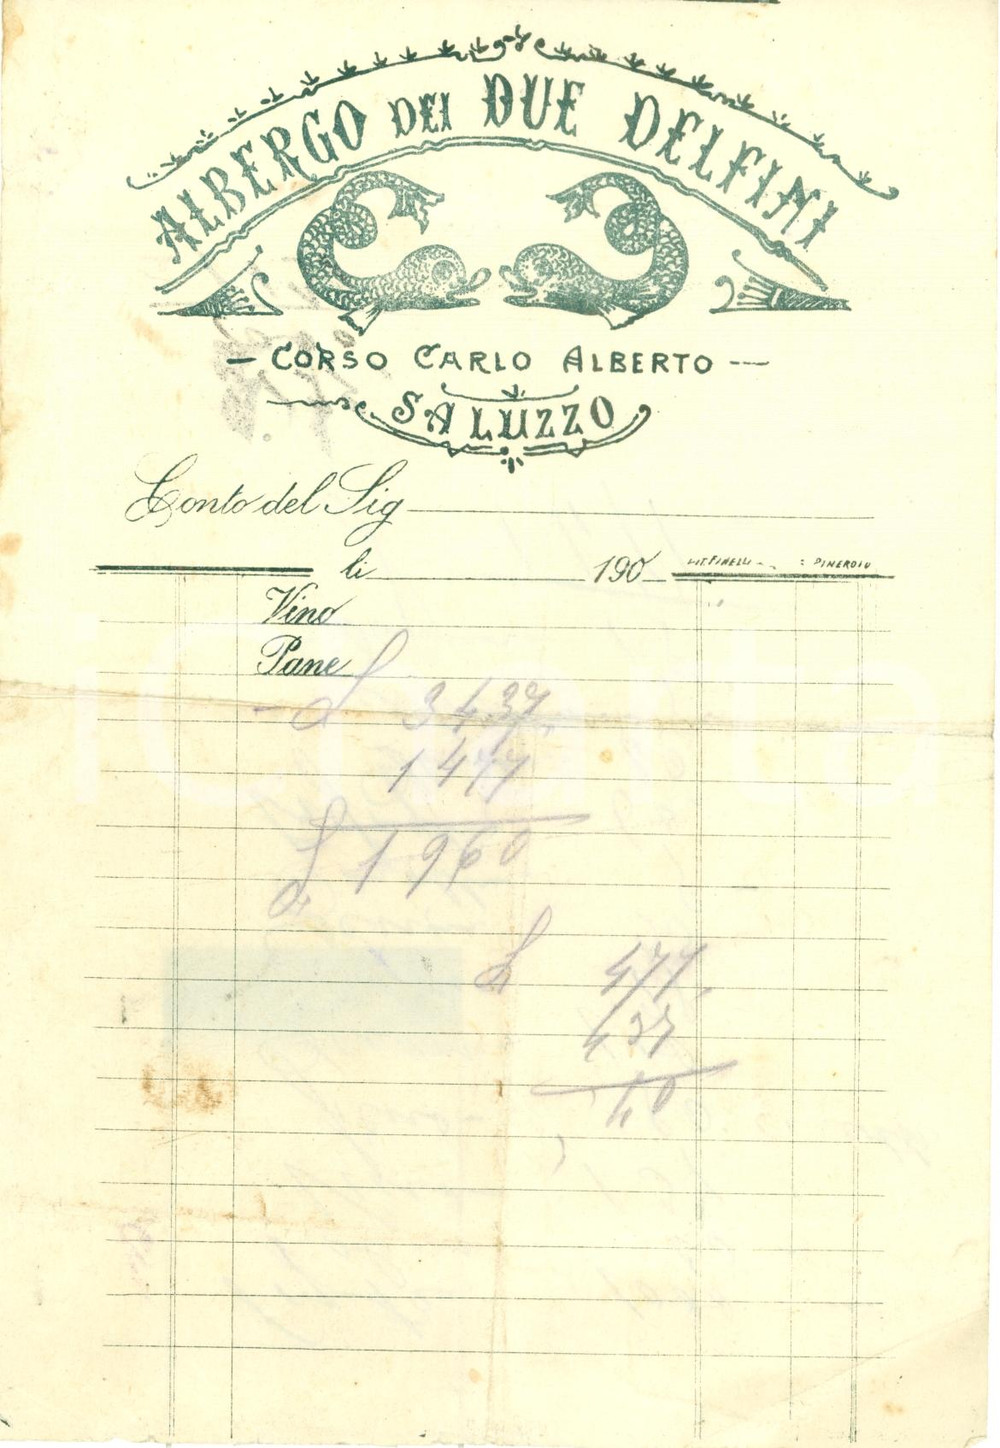 ALBERGO DEI DUE DELFINI
— CORSO CARLO ALBERTO —
SALUZZO
Conto del Sig
li 190 LIT. FINELLI - PINEROLO
Vino
Pane
- L 3437.
1477
L 1960
L 477.
437
40